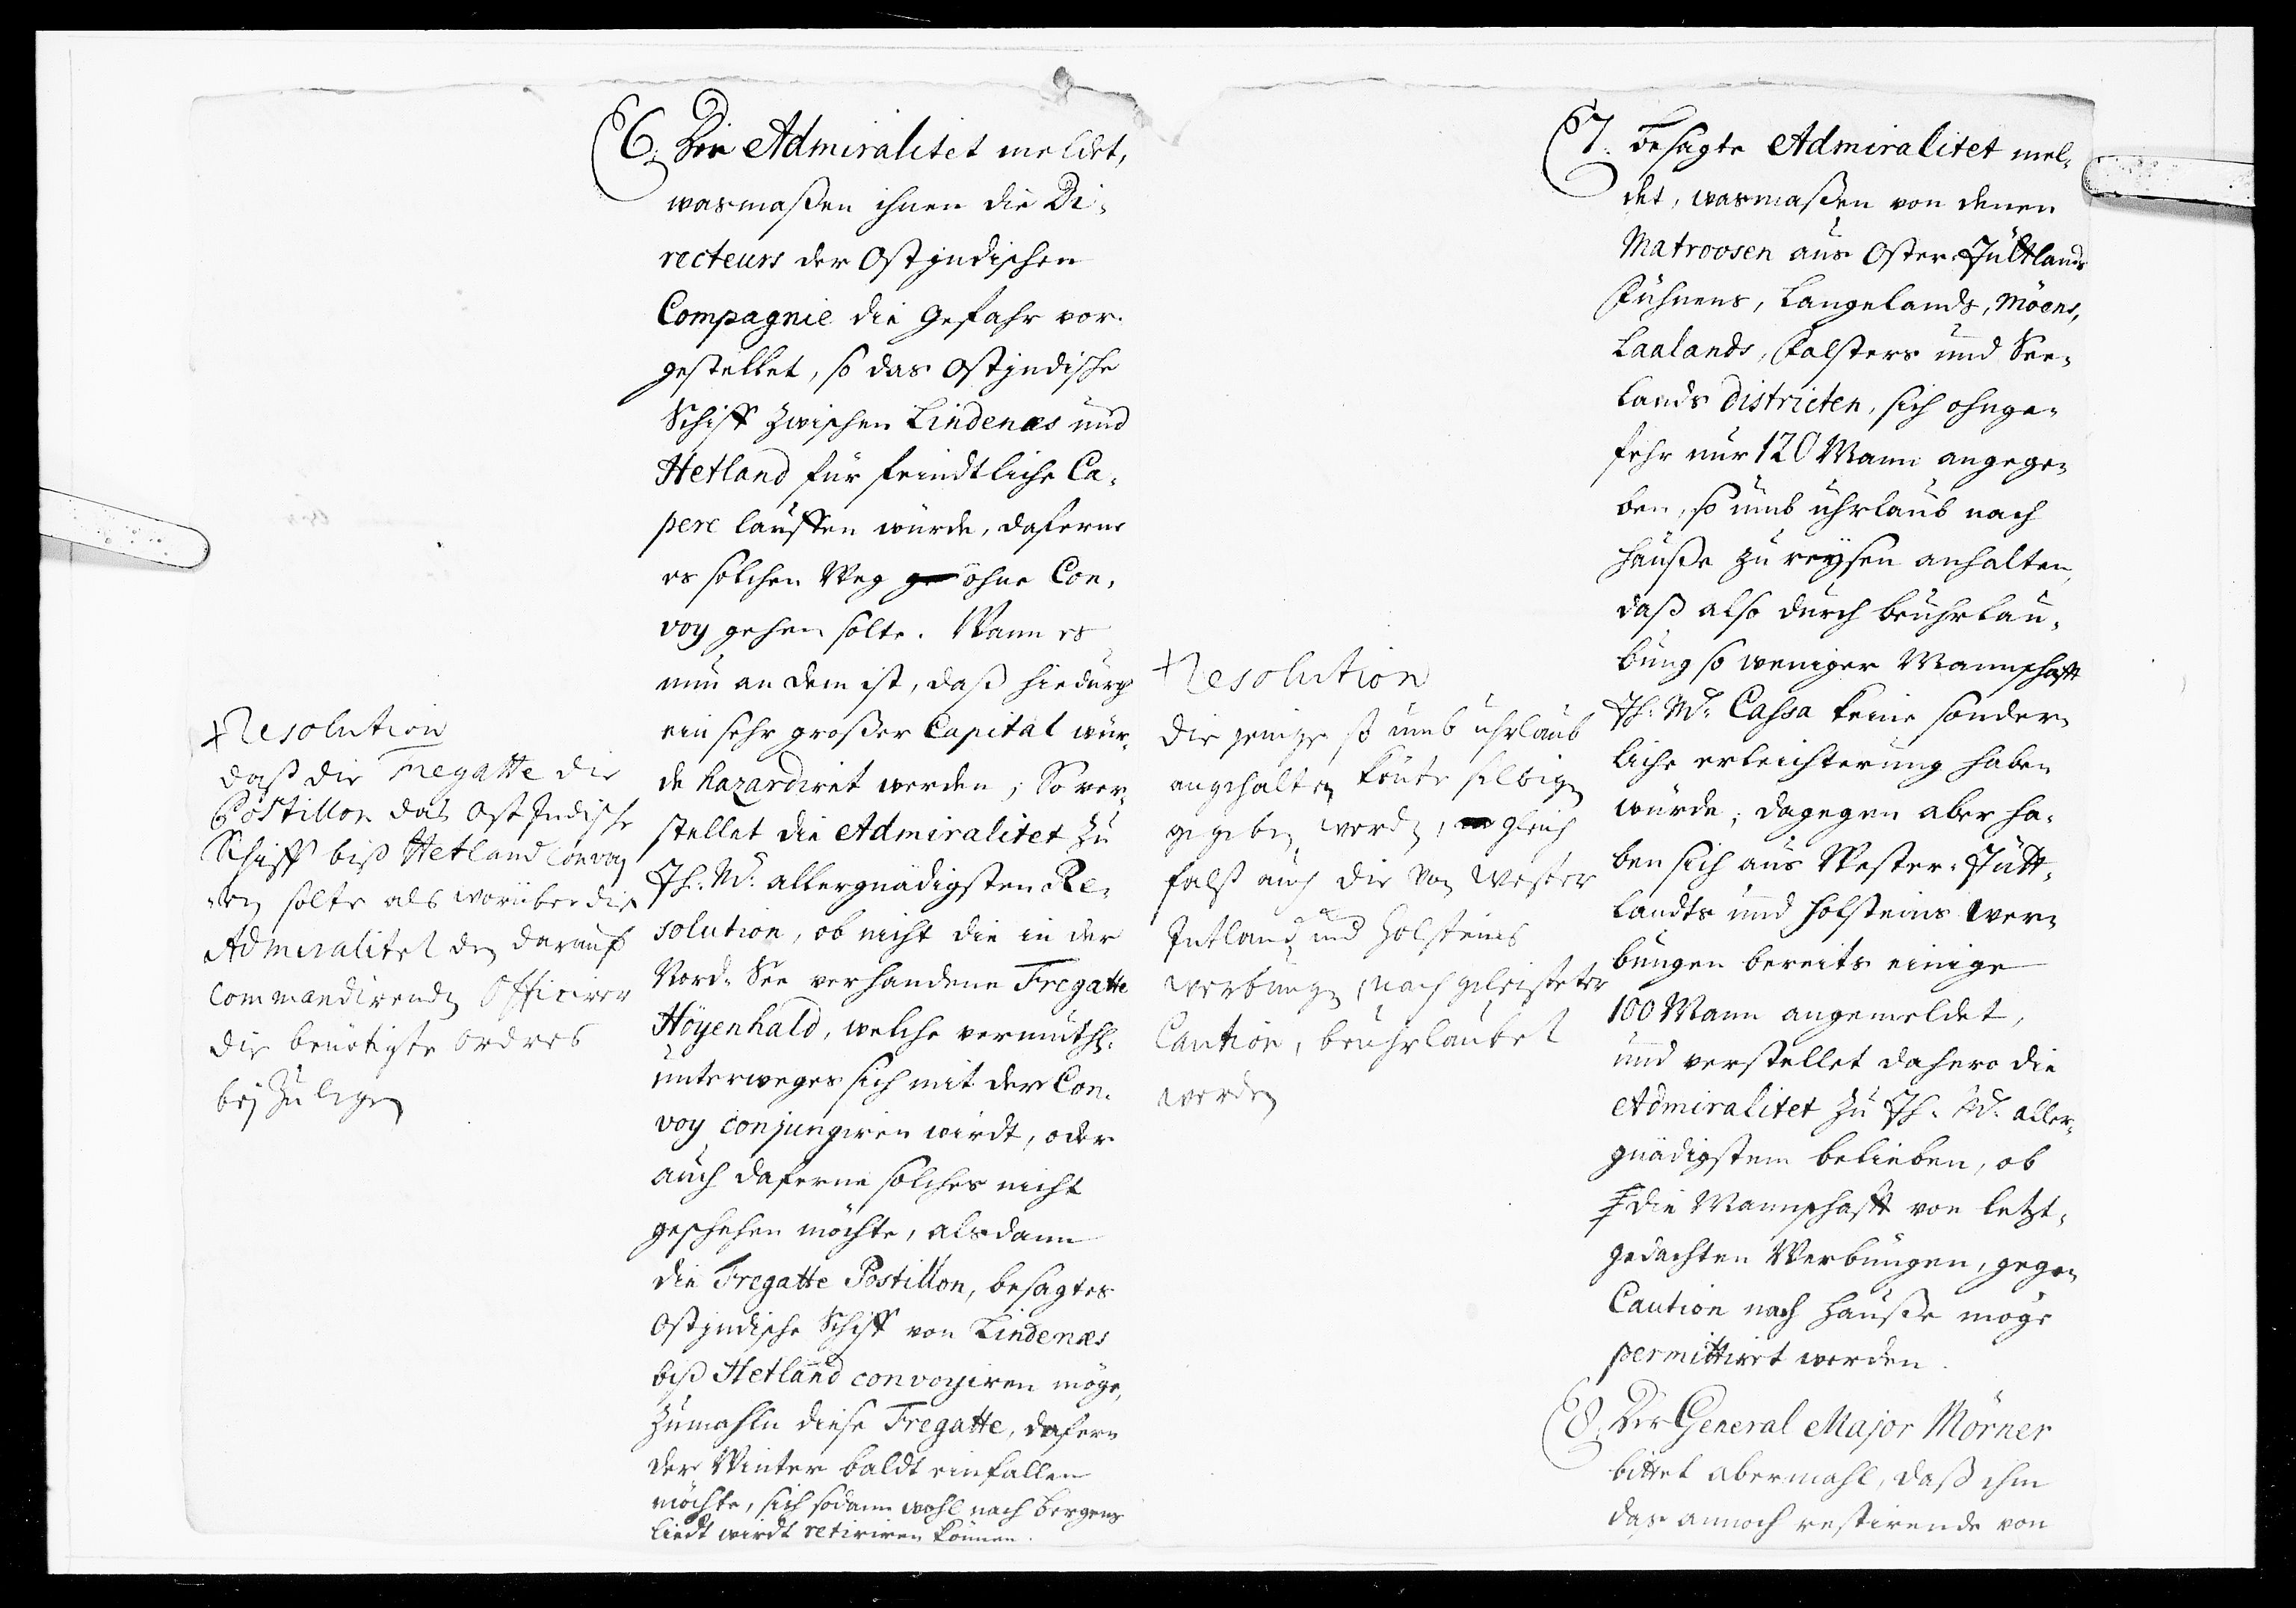 6. Die Admiralitet meldet,
wasmaßen ihnen die Di-
recteurs der Ostjndischen
Compagnie die Gefahr vor-
gestellet, so das Ostjndische
Schiff zwischen Lindenæs und
Hetland für feindtliche Ca-
pere lauffen würde, daferne
es solchen Weg ohne Con-
voy gehen solte. Wann es
nun an dem ist, daß hiedurch
ein sehr großer Capital wür-
de hazardiret werden; So ver-
stellet die Admiralitet zu
Jh. M. allergnädigsten Re-
solution, ob nicht die in der
Nord-See verhandene Fregatte
Höyenhald, welche vermuthl.
unterweges sich mit der Con-
voy conjungiren wirdt, oder
auch daferne solches nicht
geschehen möchte, alsdann
die Fregatte Postillon, besagtes
Ostjndische Schiff von Lindenæs
biß Hetland convoyiren möge,
zumahln diese Fregatte, dafern
der Winter baldt einfallen
möchte, sich sodann wohl nach Bergens
liedt wirdt retiriren können.
Resolution
daß die Fregatte die
Postillon das OstJndische
Schiff biß Hetland convoy
ren solte als worüber die
Admiralitet den darauf
Commandirenden Officirer
die benötigte ordres
beyzulegen
7. Besagte Admiralitet mel-
det, wasmaßen von denen
Matroosen aus Oster-Jüttlands
Fühnens, Langelands, Möens,
Laalands, Falsters und See-
lands districten, sich ohnge-
fehr nur 120 Mann angege-
ben, so umb uhrlaub nach
Hauße zu reysen anhalten,
daß also durch beuhrlau-
bung so weniger Mannschafft
Jh. M. Cassa keine sonder-
liche erleichterung haben
würde; dagegen aber ha-
ben sich aus Wester-Jütt-
landts und Holsteins Wer-
bungen bereits einige
100 Mann angemeldet,
und verstellet dahero die
Admiralitet zu Jh. M. aller-
gnädigstem belieben, ob
die Mannschafft von letzt-
gedachten Werbungen, gegen
Caution nach Hauße möge
permittiret werden.
Resolution
die jenige so umb uhrlaub
angehalten könte selbigen
gegeben werden, gleich
falß auch die von Wester
Jutland und Holsteins
werbungen, nach geleisteter
Caution, beuhrlaubet
werden
8. Der General Major Mörner
bittet abermahl, daß ihm
das annoch restirende von